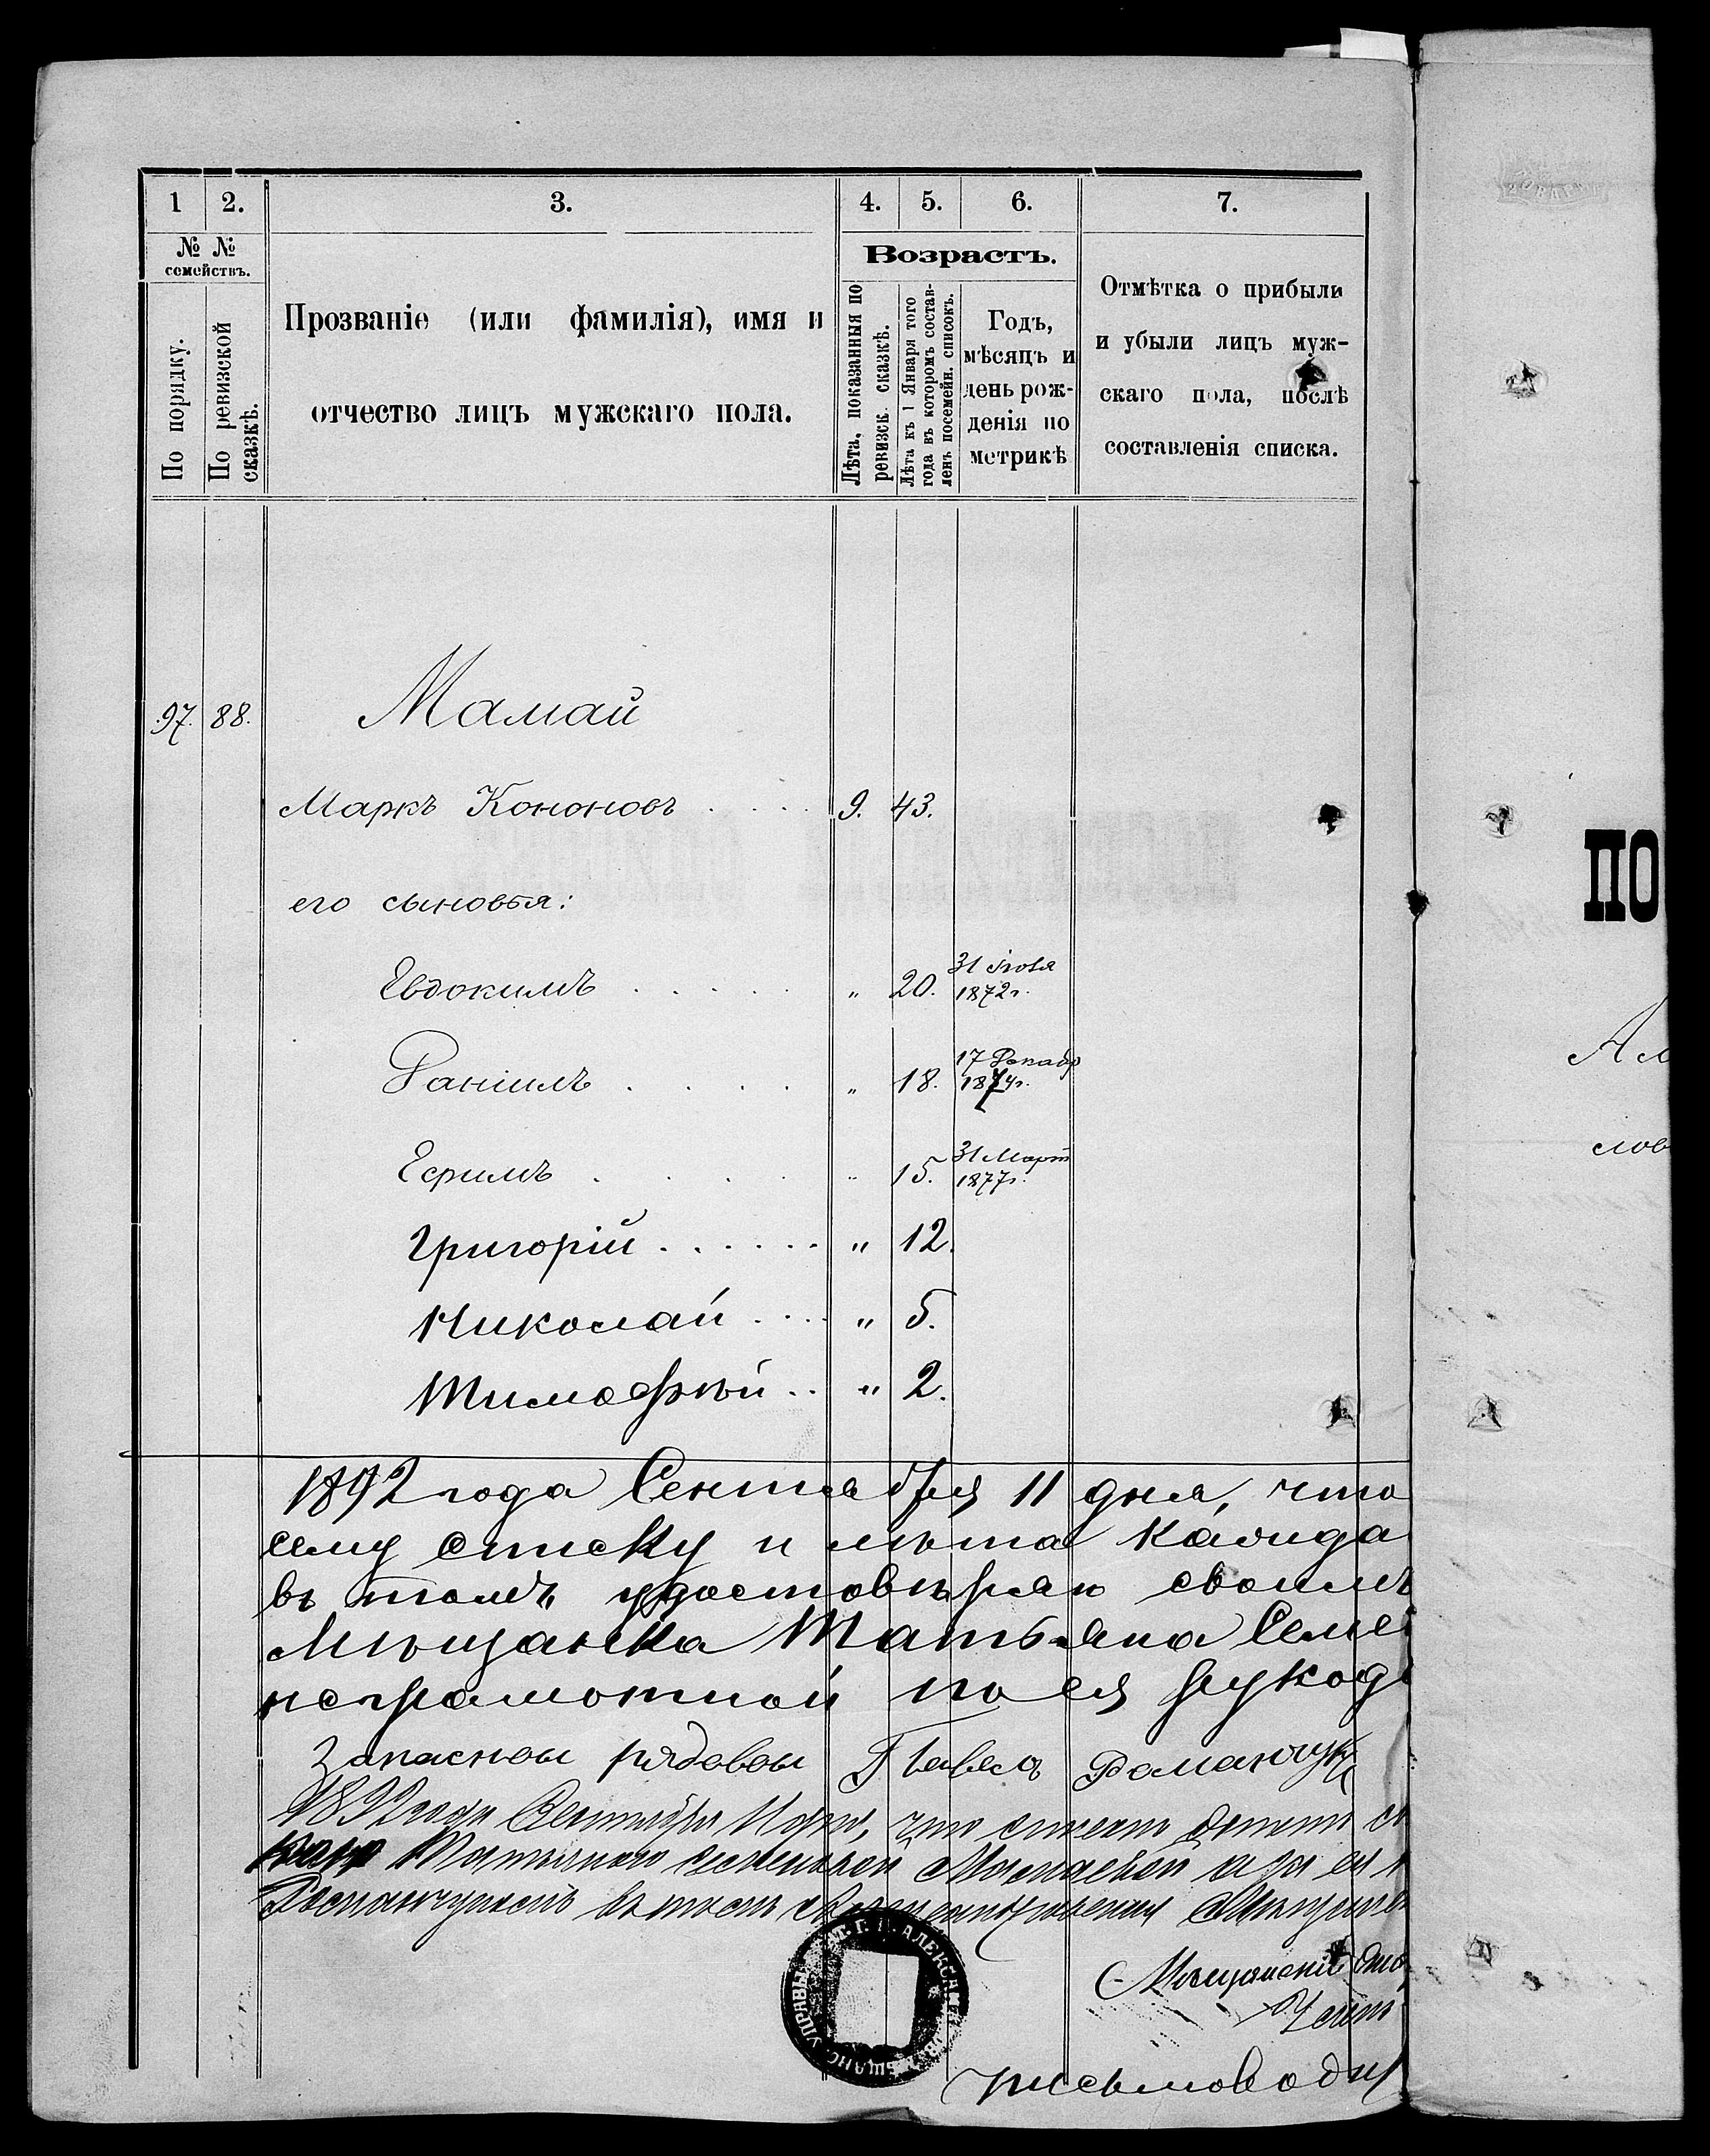 1 2. 3. 4. 5. 6. 7.
№ №
семействъ.
По порядку.
По ревизской
сказкѣ.
Прозваніе (или фамилія), имя и
отчество лицъ мужскаго пола.
Возрастъ.
Лѣта, показанныя по
ревизск. сказкѣ.
Лѣта къ 1 Января того
года въ которомъ состав-
ленъ посемейн. списокъ.
Годъ,
мѣсяцъ и
день рож-
денія по
метрикѣ
Отмѣтка о прибыли
и убыли лицъ муж-
скаго пола, послѣ
составленія списка.
97. 88. Мамай
Маркъ Кононовъ . . . . 9. 43.
его сыновья:
Евдокимъ . . . . . „ 20. 31 Іюля
1872 г.
Даніилъ . . . . „ 18. 17 Декабр
1874 г.
Ефимъ . . . . „ 15. 31 Март
1877 г.
Григорій . . . . . . „ 12.
Николай . . . . „ 5.
Тимофѣй . . „ 2.
1892 года Сентября 11 дня, что
сему списку и лѣта кажда
въ томъ удостовѣряю своимъ
Мѣщанка Татьяна Семе
неграмотной по ея рукода
Запасной рядовой Павелъ Романчук
1892 года Сентября 11 дня, что
Мамаевой а за ея
Романчукомъ въ томъ
Мѣщанскій
письмоводи
ПО
слов